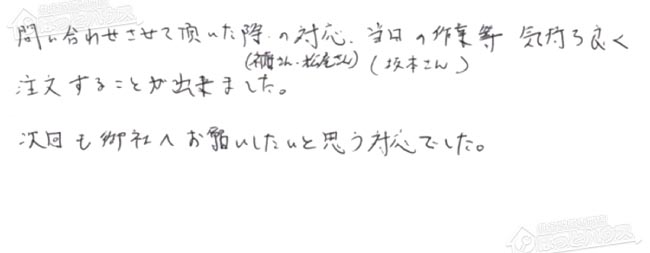 問い合わせさせて頂いた際の対応、当日の作業等 気持ち良く
(松尾さん)(坂本さん)
注文することが出来ました。
次回も御社へお願いしたいと思う対応でした。